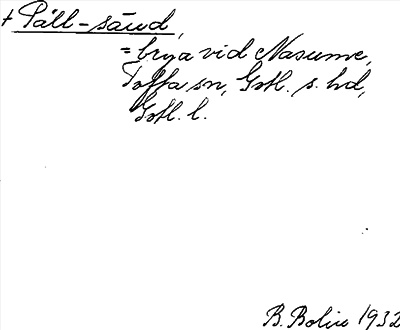 + Päll-sänd,
= brya vid Nasume,
Toffa sn, Gotl. s. hd,
Gotl. l.
B. Bolin 1932